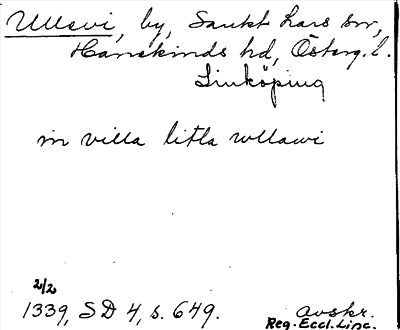 Ullevi, by, Sankt Lars sn,
Hanekinds hd, Österg. l.
Linköping
in villa litla wllawi
2/2
1339, SD 4, s. 649.
avskr.
Reg. Eccl. Linc.